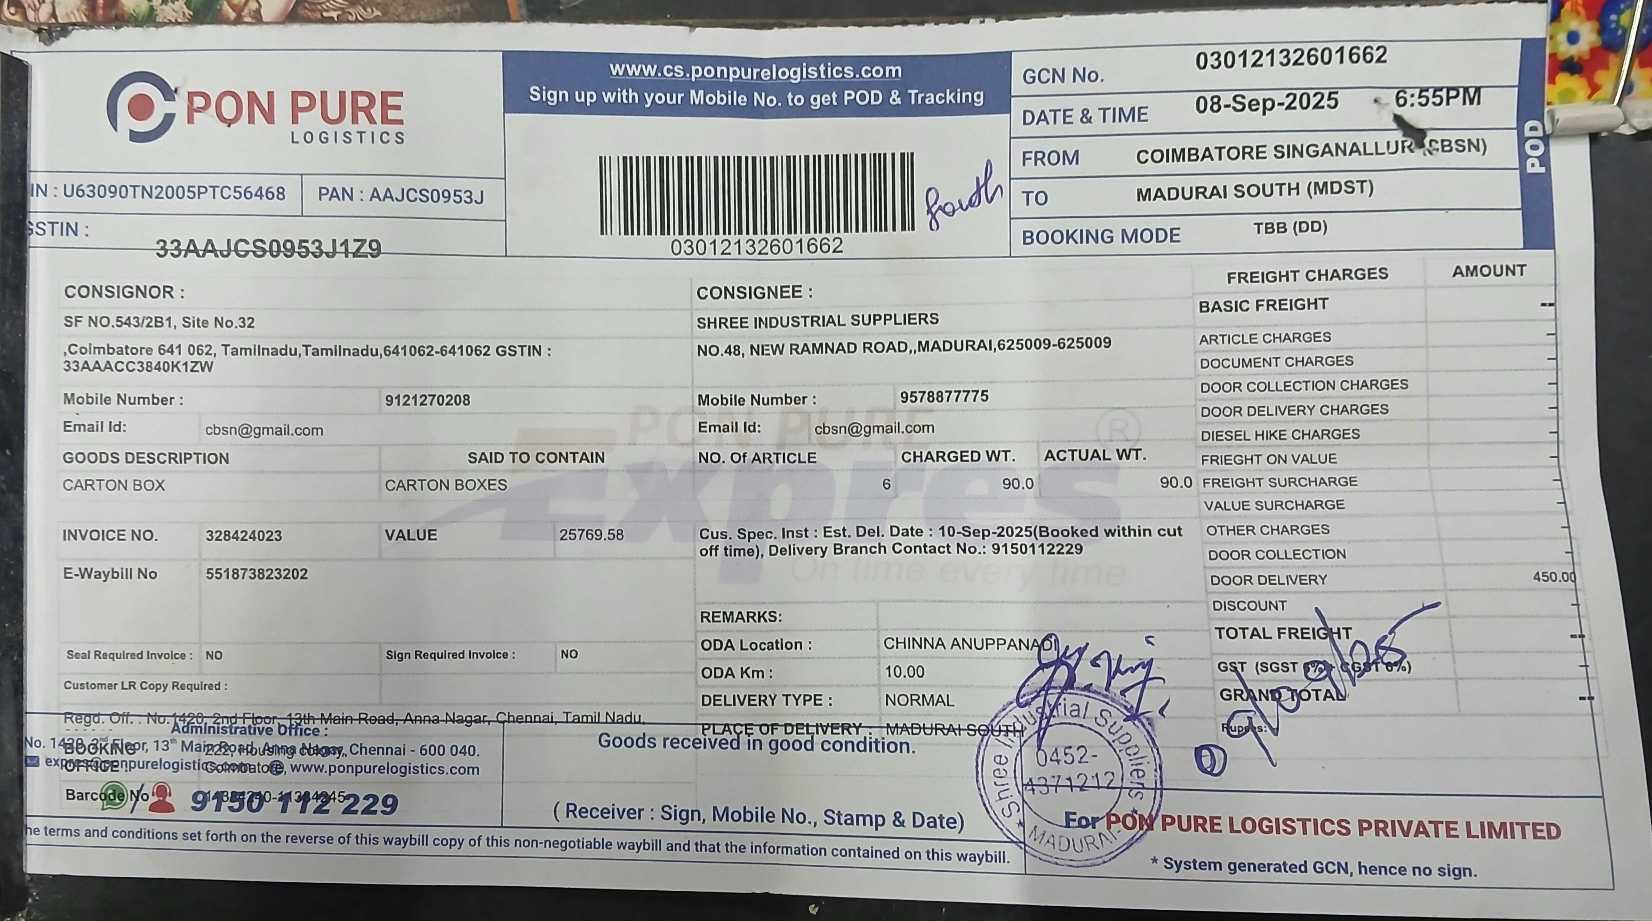 PON PURE
LOGISTICS
IN : U63090TN2005PTC56468 PAN : AAJCS0953J
GSTIN :
33AAJCS0953J1Z9
www.cs.ponpurelogistics.com
Sign up with your Mobile No. to get POD & Tracking
03012132601662
South
GCN No. 03012132601662
DATE & TIME 08-Sep-2025 6:55PM
FROM COIMBATORE SINGANALLUR (CBSN)
TO MADURAI SOUTH (MDST)
BOOKING MODE TBB (DD)
POD
CONSIGNOR :
SF NO.543/2B1, Site No.32
,Coimbatore 641 062, Tamilnadu,Tamilnadu,641062-641062 GSTIN :
33AAACC3840K1ZW
Mobile Number : 9121270208
Email Id: cbsn@gmail.com
CONSIGNEE :
SHREE INDUSTRIAL SUPPLIERS
NO.48, NEW RAMNAD ROAD,,MADURAI,625009-625009
Mobile Number : 9578877775
Email Id: cbsn@gmail.com
GOODS DESCRIPTION SAID TO CONTAIN NO. Of ARTICLE CHARGED WT. ACTUAL WT.
CARTON BOX CARTON BOXES 6 90.0 90.0
PON PURE
Expres ®
On time every time
INVOICE NO. 328424023 VALUE 25769.58
E-Waybill No 551873823202
Cus. Spec. Inst : Est. Del. Date : 10-Sep-2025(Booked within cut
off time), Delivery Branch Contact No.: 9150112229
Seal Required Invoice : NO Sign Required Invoice : NO
Customer LR Copy Required :
REMARKS:
ODA Location : CHINNA ANUPPANADI
ODA Km : 10.00
DELIVERY TYPE : NORMAL
PLACE OF DELIVERY : MADURAI SOUTH
FREIGHT CHARGES AMOUNT
BASIC FREIGHT --
ARTICLE CHARGES -
DOCUMENT CHARGES -
DOOR COLLECTION CHARGES -
DOOR DELIVERY CHARGES -
DIESEL HIKE CHARGES -
FRIEGHT ON VALUE -
FREIGHT SURCHARGE -
VALUE SURCHARGE -
OTHER CHARGES -
DOOR COLLECTION -
DOOR DELIVERY 450.00
DISCOUNT -
TOTAL FREIGHT --
GST (SGST 6%+ CGST 6%) -
GRAND TOTAL --
Rupees:
Regd. Off. : No. 1420, 2nd Floor, 13th Main Road, Anna Nagar, Chennai, Tamil Nadu,
Administrative Office :
No. 1420, 2nd Floor, 13th Main Road, Anna Nagar, Chennai - 600 040.
BOOKING OFFICE : 222, Housing colony,, Coimbatore,
expres@ponpurelogistics.com www.ponpurelogistics.com
Barcode No
9150 112 229
Goods received in good condition.
( Receiver : Sign, Mobile No., Stamp & Date)
Shree Industrial Suppliers
0452-
4371212
MADURAI
For PON PURE LOGISTICS PRIVATE LIMITED
* System generated GCN, hence no sign.
he terms and conditions set forth on the reverse of this waybill copy of this non-negotiable waybill and that the information contained on this waybill.